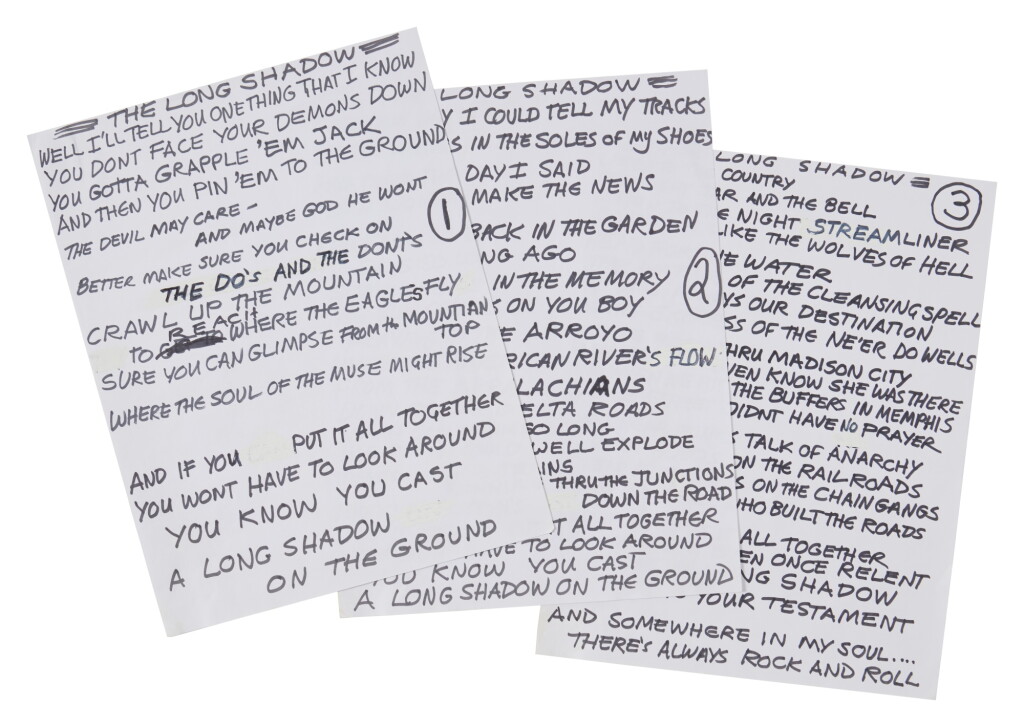 THE LONG SHADOW
WELL I'LL TELL YOU ONE THING THAT I KNOW
YOU DONT FACE YOUR DEMONS DOWN
YOU GOTTA GRAPPLE 'EM JACK
AND THEN YOU PIN 'EM TO THE GROUND
1
THE DEVIL MAY CARE -
AND MAYBE GOD HE WONT
BETTER MAKE SURE YOU CHECK ON
THE DO'S AND THE DONT'S
CRAWL UP THE MOUNTAIN
TO REACH WHERE THE EAGLES FLY
SURE YOU CAN GLIMPSE FROM the MOUNTIAN
TOP
WHERE THE SOUL OF THE MUSE MIGHT RISE
AND IF YOU PUT IT ALL TOGETHER
YOU WONT HAVE TO LOOK AROUND
YOU KNOW YOU CAST
A LONG SHADOW
ON THE GROUND
LONG SHADOW
Y I COULD TELL MY TRACKS
S IN THE SOLES OF MY SHOES
DAY I SAID
MAKE THE NEWS
BACK IN THE GARDEN
NG AGO
2
IN THE MEMORY
S ON YOU BOY
E ARROYO
RICAN RIVER'S FLOW
LACHIANS
ELTA ROADS
SO LONG
WELL EXPLODE
INS
THRU THE JUNCTIONS
DOWN THE ROAD
T ALL TOGETHER
AVE TO LOOK AROUND
YOU KNOW YOU CAST
A LONG SHADOW ON THE GROUND
LONG SHADOW
3
COUNTRY
AR AND THE BELL
E NIGHT STREAMLINER
LIKE THE WOLVES OF HELL
HE WATER
OF THE CLEANSING SPELL
YS OUR DESTINATION
SS OF THE NE'ER DO WELLS
THRU MADISON CITY
VEN KNOW SHE WAS THERE
THE BUFFERS IN MEMPHIS
DIDNT HAVE NO PRAYER
S TALK OF ANARCHY
ON THE RAILROADS
S ON THE CHAINGANGS
WHO BUILT THE ROADS
ALL TOGETHER
EN ONCE RELENT
NG SHADOW
YOUR TESTAMENT
AND SOMEWHERE IN MY SOUL....
THERE'S ALWAYS ROCK AND ROLL